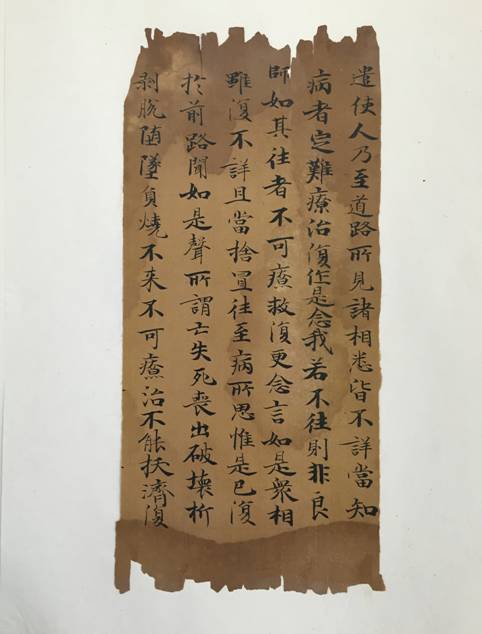 遣使人乃至道路所見諸相悉皆不詳當知
病者定難療治復作是念我若不往則非良
師如其往者不可療救復更念言如是衆相
雖復不詳且當捨置往至病所思惟是已復
於前路聞如是聲所謂亡失死喪出破壞析
剥脫随墜負燒不来不可療治不能扶濟復